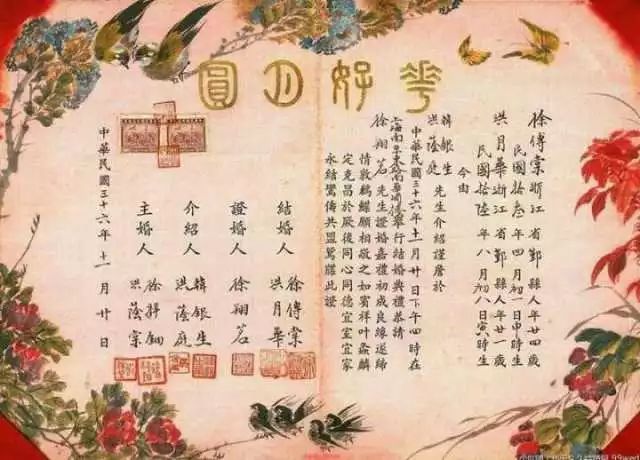 花好月圓
徐傅棠浙江省鄞縣人年廿四歲
民國拾叁年四月初一日申時生
洪月華浙江省鄞縣人年廿一歲
民國拾陸年八月初八日寅時生
今由
韓銀生
洪蔭庭
先生介紹謹詹於
中華民國三十六年十一月廿日下午四時在
上海南京東路南華酒樓舉行結婚典禮恭請
徐翔茗先生證婚嘉禮初成良緣遂締
情敦鶼鰈願相敬之如賓祥叶螽麟
定克昌於厥後同心同德宜室宜家
永結鸞儔共盟鴛牒此證
結婚人
徐傅棠
洪月華
證婚人
徐翔茗
介紹人
韓銀生
洪蔭庭
主婚人
洪蔭棠
中華民國三十六年十一月廿日